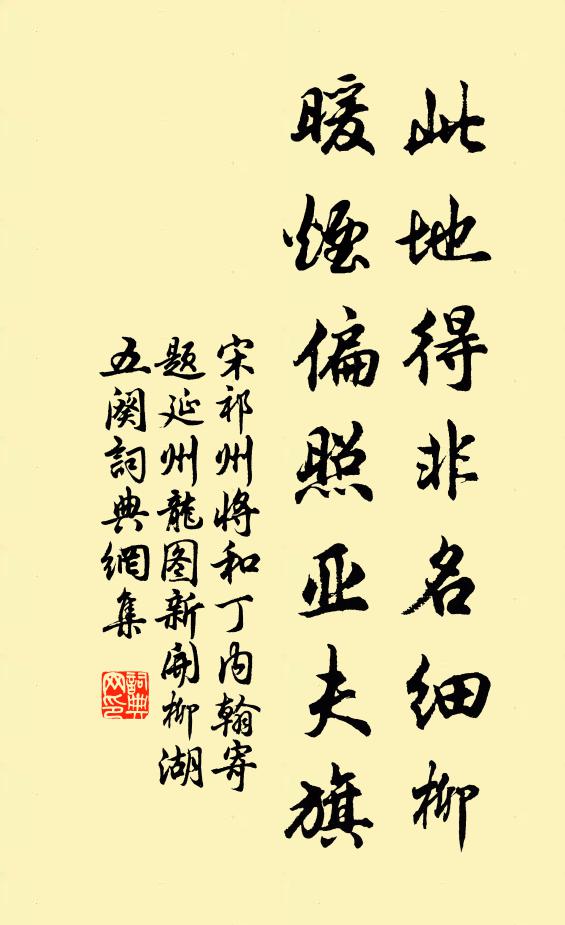 此地得非名细柳
暖烟偏照亚夫旗
宋祁州将和丁内翰寄
题延州龙图新开柳湖
五阕词典网集
词典网印